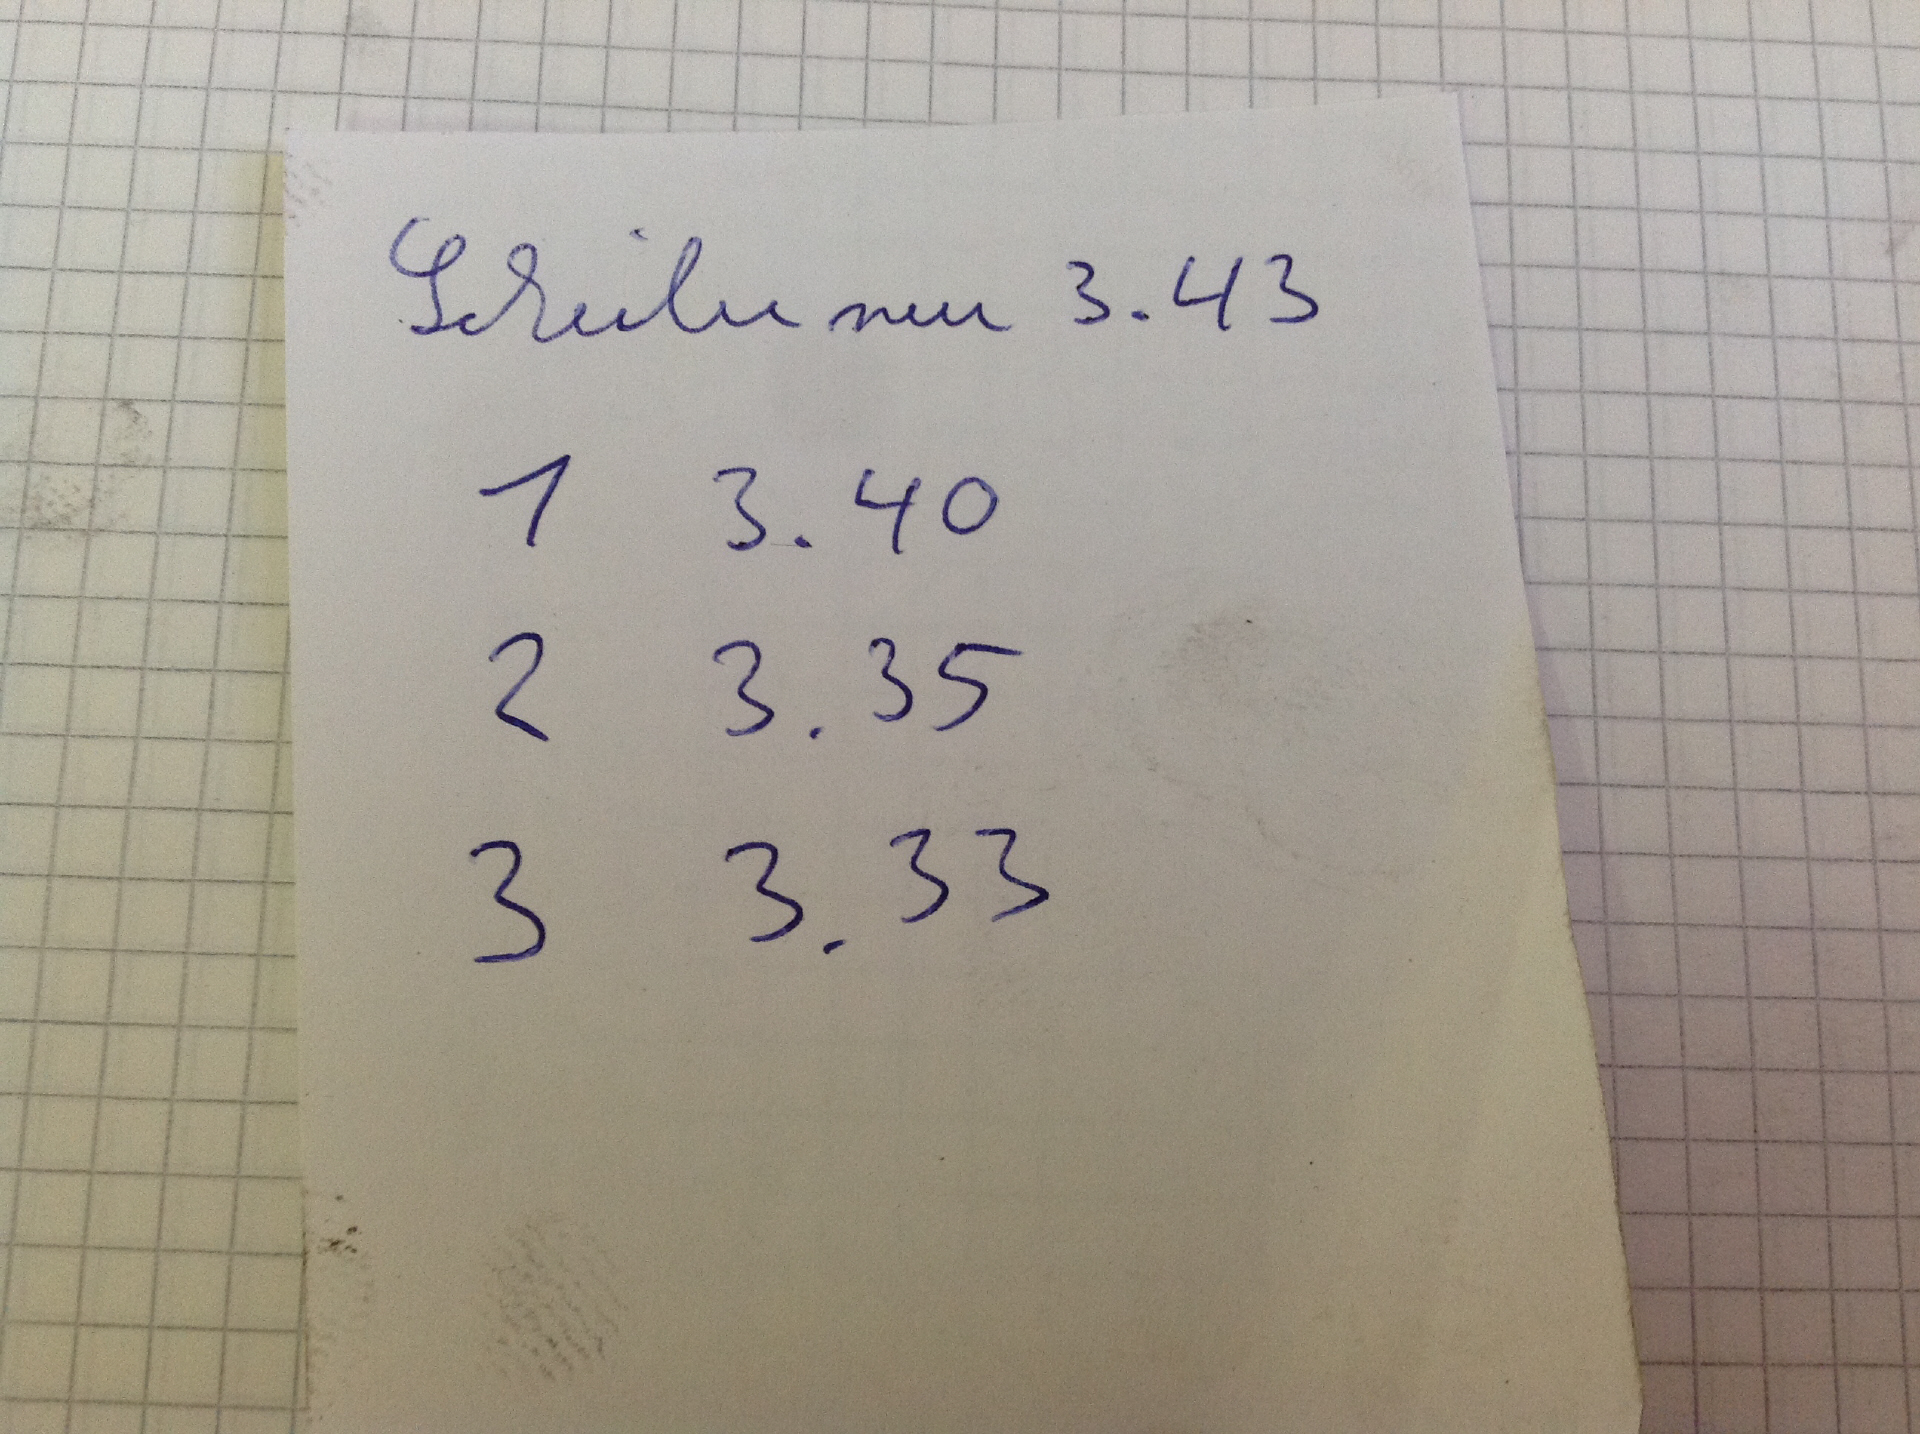 Scheibe neu 3.43
1 3.40
2 3.35
3 3.33